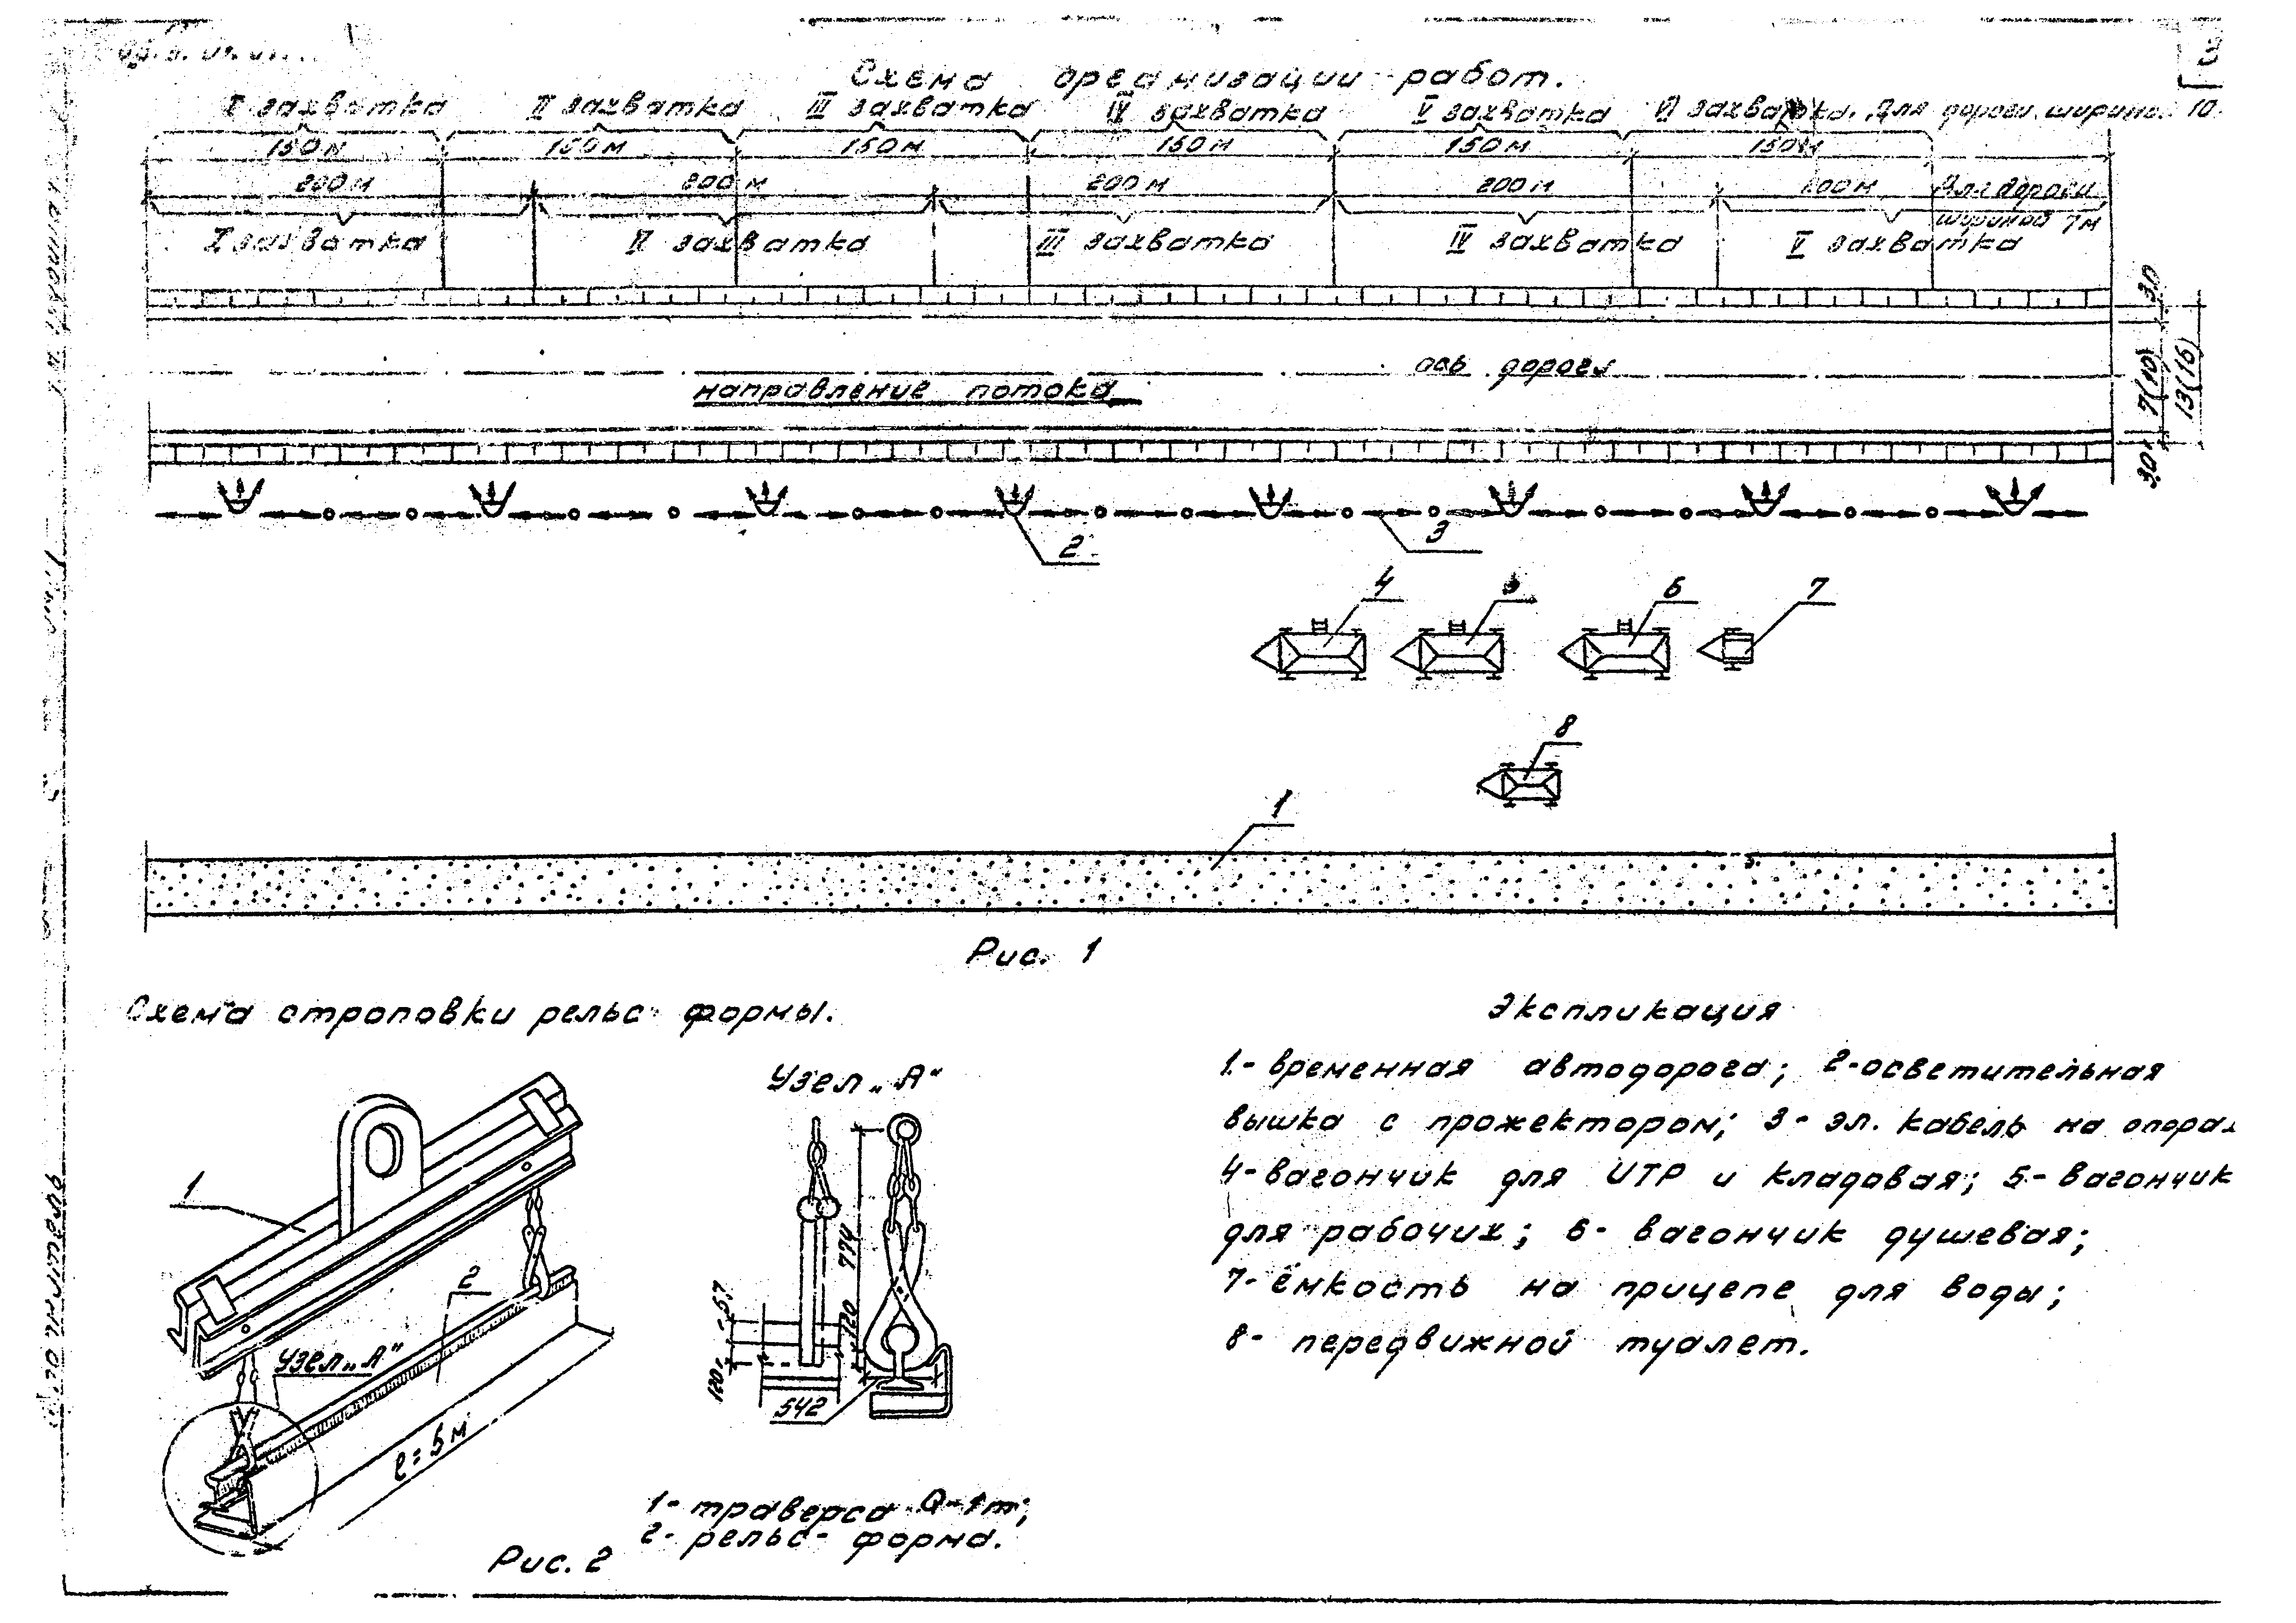 3
Схема организации работ.
I захватка II захватка III захватка IV захватка V захватка VI захватка. Для дороги ширино. 10.
150м 150м 150м 150м 150м 150м
200м 200м 200м 200м 200м Для дороги
шириной 7м
I захватка II захватка III захватка IV захватка V захватка
3.0
ось дороги
направление потока
7(10)
13(16)
3.0
2
3
4 5 6 7
8
1
Рис. 1
Схема строповки рельс формы.
Узел „А“
1
2
Узел „А“
ℓ=5м
774
120
67
120
542
1- траверса Q-1т;
2- рельс- форма.
Рис. 2
Экспликация
1.- временная автодорога; 2-осветительная
вышка с прожектором; 3- эл. кабель на опорах
4-вагончик для ИТР и кладовая; 5- вагончик
для рабочих; 6- вагончик душевая;
7- ёмкость на прицепе для воды;
8- передвижной туалет.